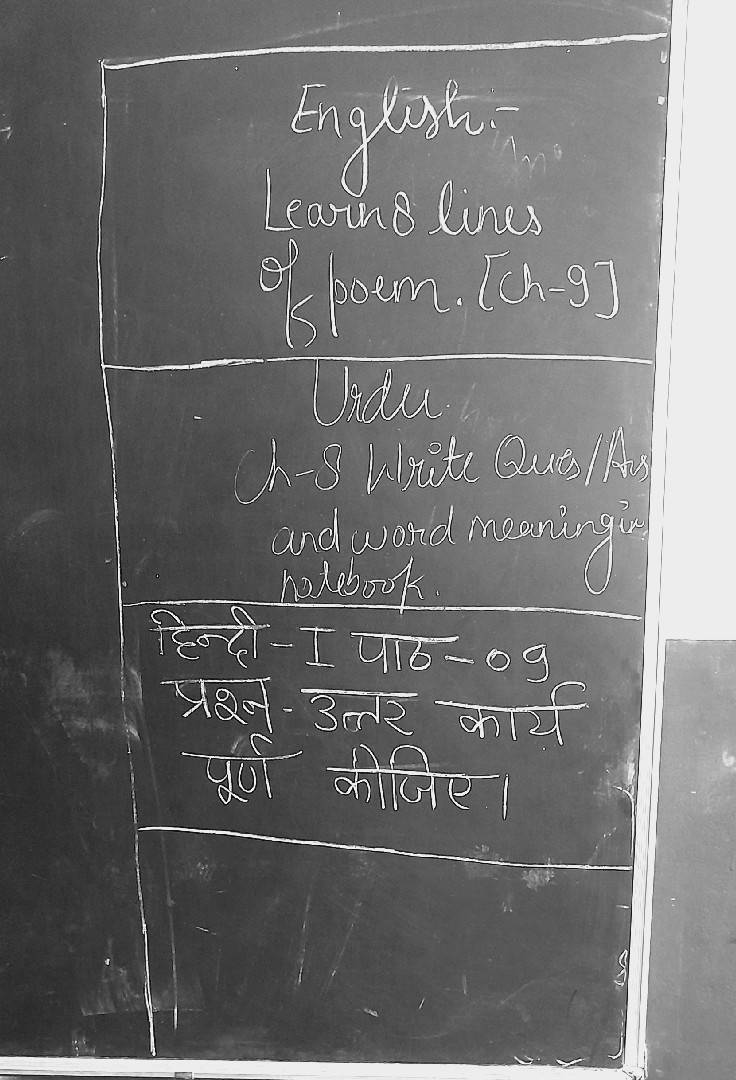 English:-
Learn 8 lines
of poem. [Ch-9]
Urdu.
Ch-8 Write Ques/Ans
and word meaning in
notebook.
हिन्दी - I पाठ - 09
प्रश्न - उत्तर कार्य
पूर्ण कीजिए।